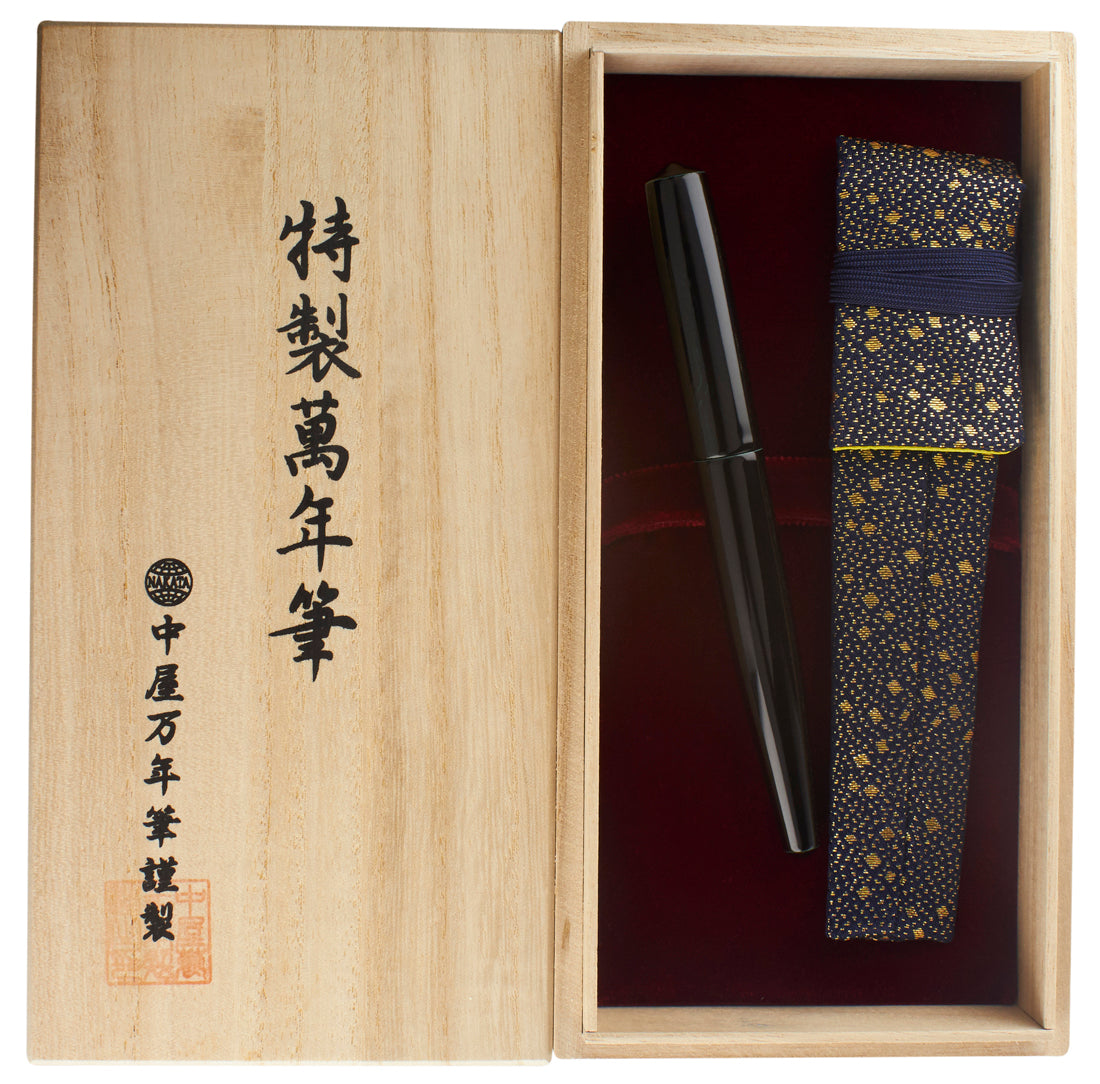 特製萬年筆
NAKATA
中屋万年筆謹製
中屋萬